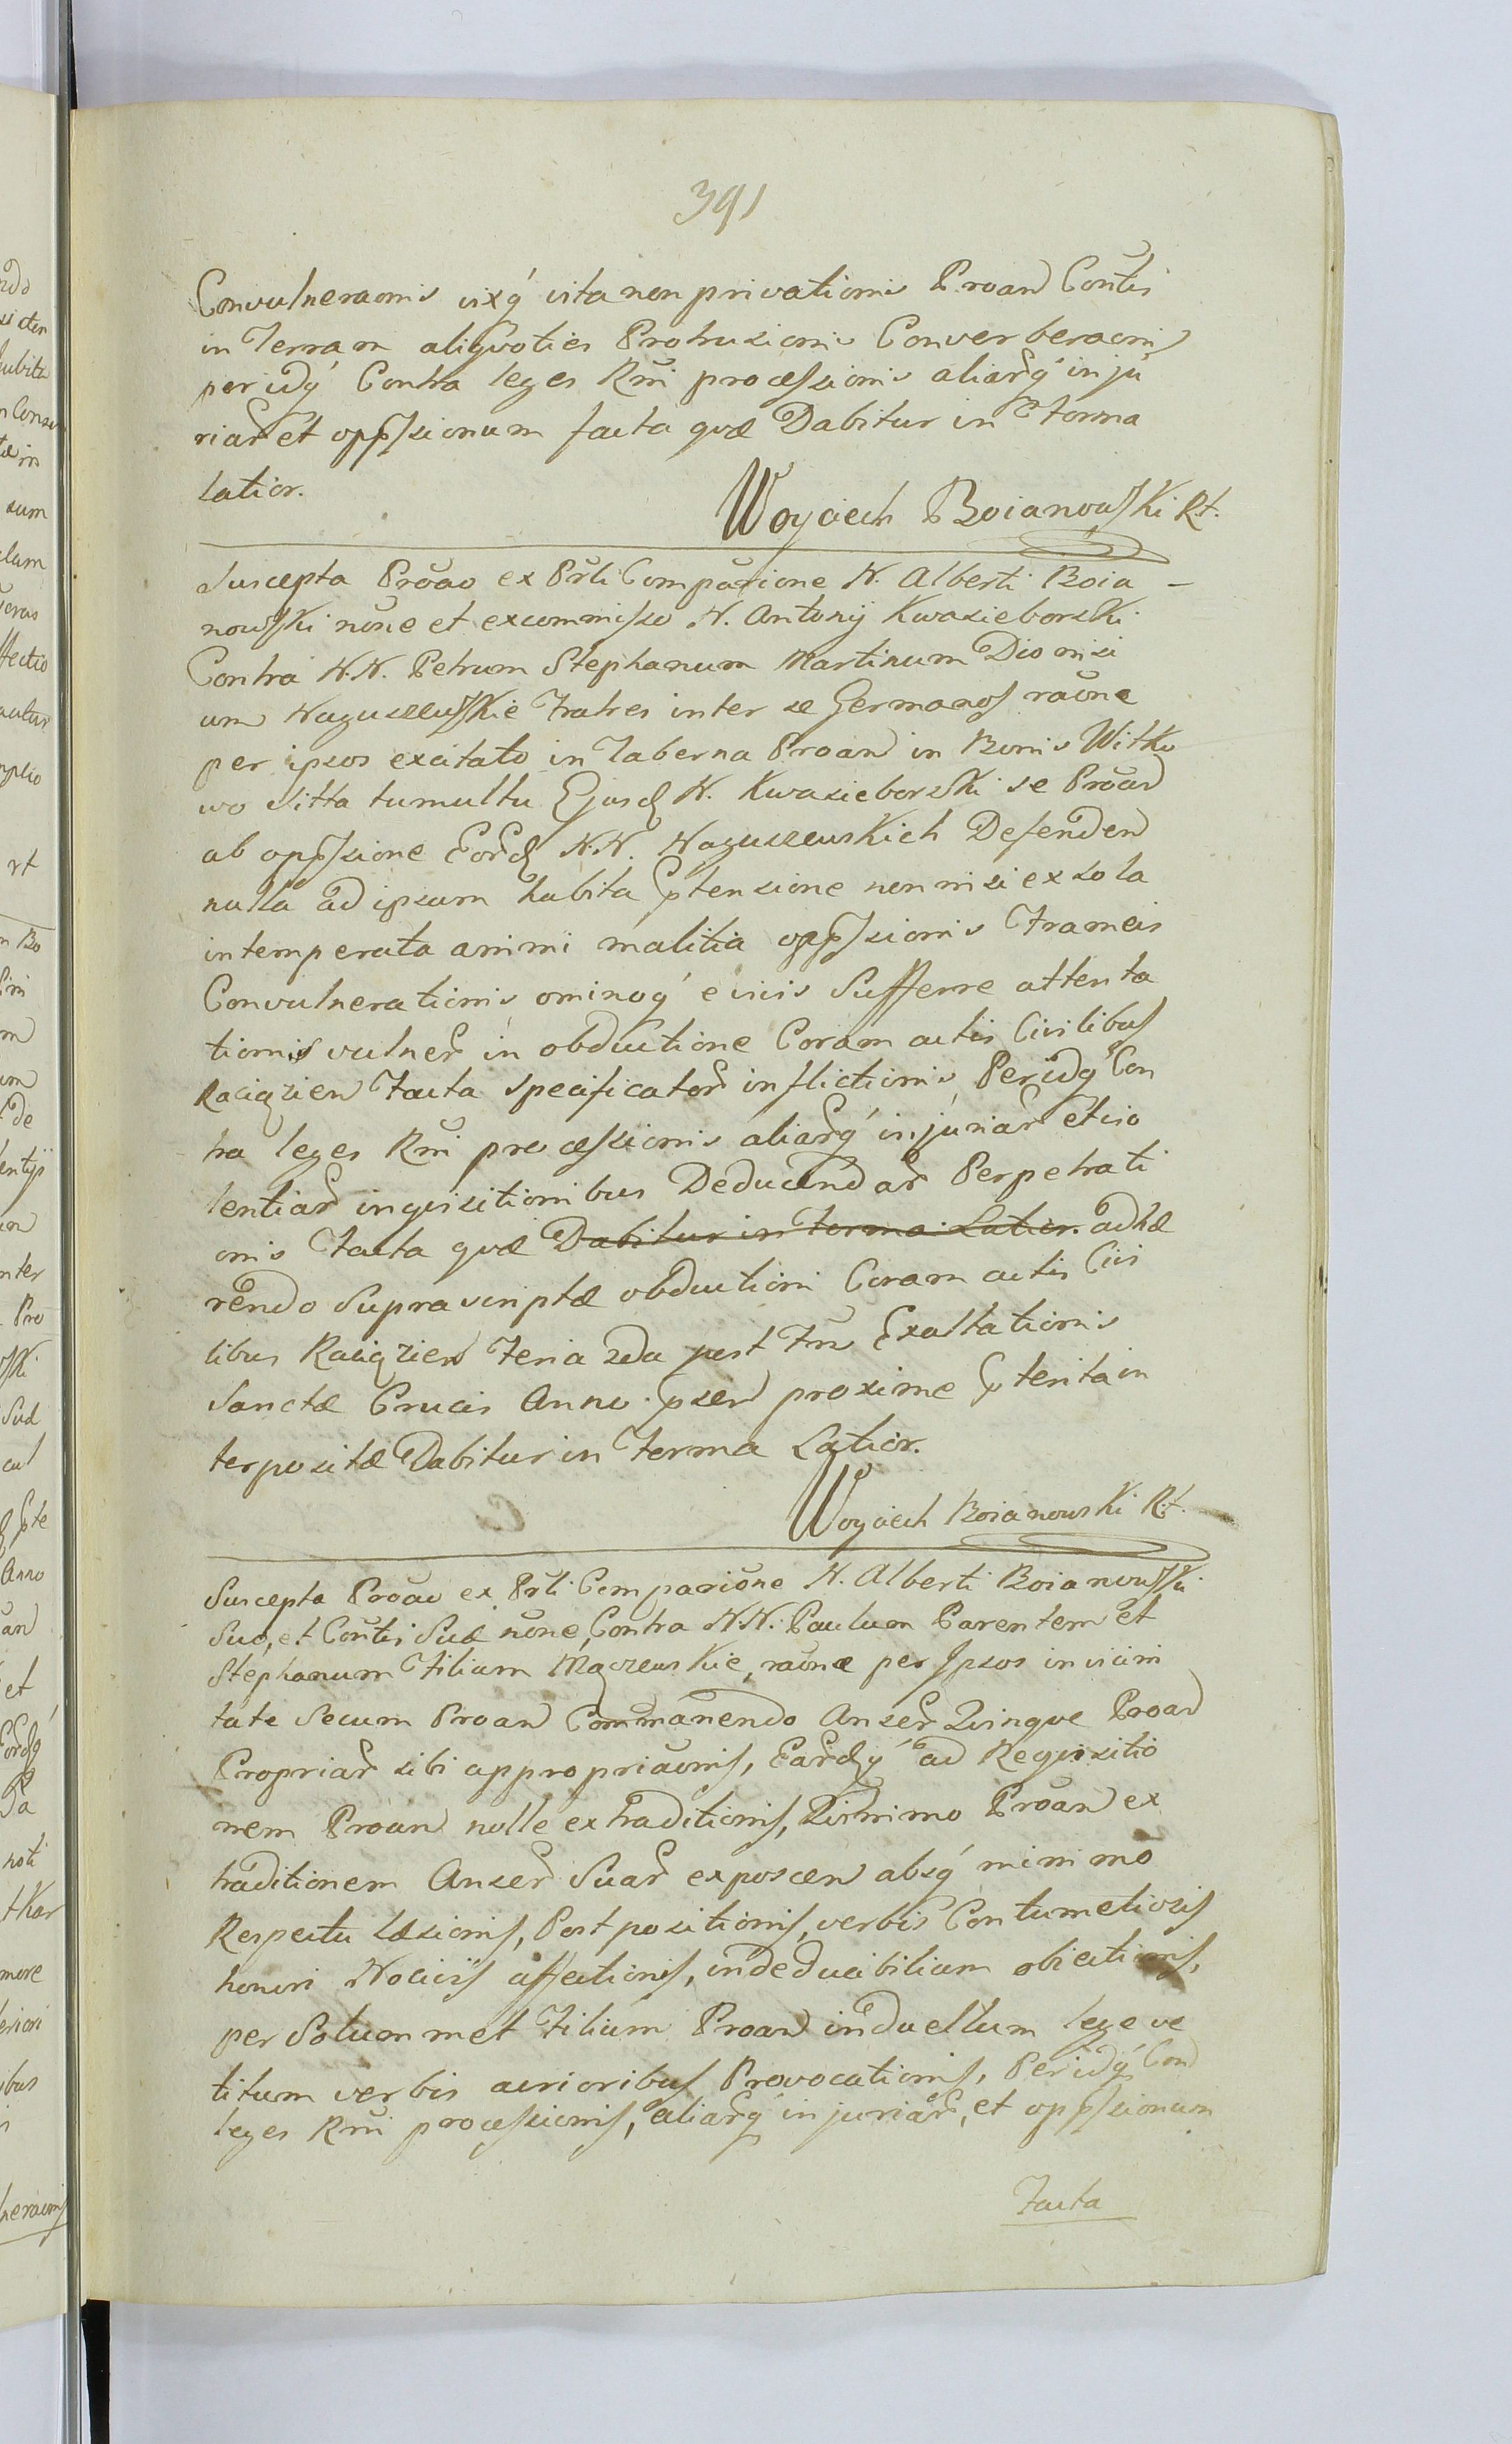 391
Convulneraonis vixq́ vita non privationis Proan Contis
in Terram aliqvoties Protrusionis Converberaonis
per idq́ Contra leges Rni processionis aliarq́ inju
riar et oppssionum facta qvæ Dabitur in Forma
latior.
Woyciech Boianowski Rt.
Suscepta Proao ex Prti Comparione N. Alberti Boia -
nowski none et excommisso N. Antonij Kwasieborski
Contra N.N. Petrum Stephanum Martinum Dionisi
um Naguszewskie Fratres inter se Germanos raone
per ipsos excitato in Taberna Proan in Bonis Witko
wo Sitta tumultu Ejusd N. Kwasieborski se Proan
ab oppssione Eord N.N. Naguszewskich Defenden
nulla ad ipsum habita ptensione non nisi ex sola
intemperata animi malitia oppssionis Frameis
Convulnerationis, ominoq́ e vivis Sufferre attenta
tionis vulner in obductione Coram actis Civilibus
Raciązien Facta specificator inflictionis, Per idq́ Con
tra leges Rni processionis aliarq́ injuriar et vio
lentiar inqvisitionibus Deducendar Perpetrati
onis Facta qvæ Dabitur in Forma Latior. adhæ
rendo Suprascriptæ obductioni Coram actis Civi
libus Raciązien Feria 2da post Fm Exaltationis
Sanctæ Crucis Anno psen proxime pterita in
terpositæ Dabitur in Forma Latior.
Woyciech Boianowski Rt.
Suscepta Proao ex Prti Comparione N. Alberti Boianowski
Suo, et Contis Suæ none, Contra N.N. Paulum Parentem et
Stephanum Filium Mączewskie, raone per Ipsos in vicini
tate Secum Proan Commanendo Anser Qvinqve Proan
Propriar sibi appropriaonis, Eardq́ ad Reqvisitio
nem Proan nolle extraditionis, Qvinimo Proan ex
traditionem Anser Suar exposcen absq́ minimo
Respectu Læsionis, Postpositionis, verbis Contumeliosis
honori Nociviis affectionis, indeducibilium obiectionis,
per Solummet Filium Proan in duellum lege ve
titum verbis acrioribus Provocationis, Per idq́ Con
leges Rni processionis, aliarq́ injuriar, et oppssionum
Facta